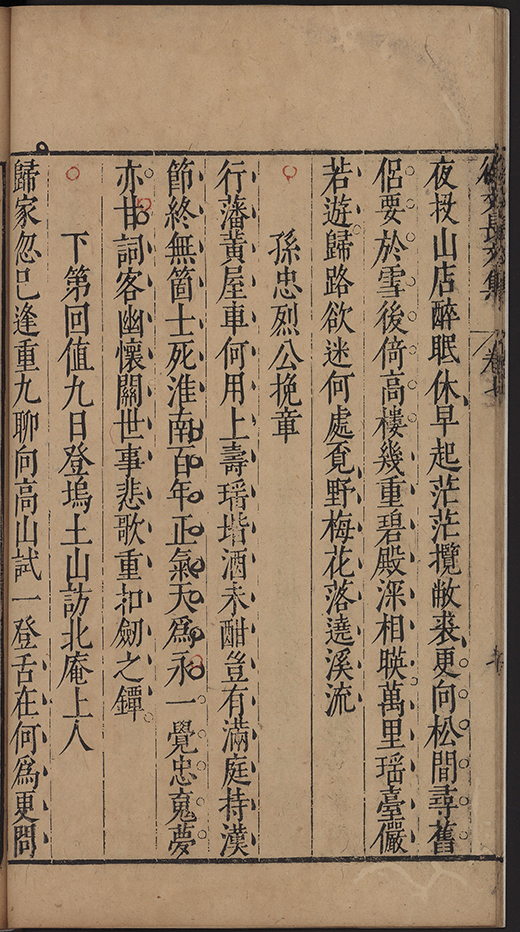 徐文長文集 卷七
夜投山店醉眠休早起茫茫攬敝裘更向松間尋舊
侶要於雪後倚高樓幾重碧殿深相暎萬里瑤臺儼
若遊歸路欲迷何處覓野梅花落遶溪流
孫忠烈公挽章
行藩黃屋車何用上壽瑤堦酒未酣豈有滿庭持漢
節終無箇士死淮南百年正氣天爲永一覺忠䰟夢
亦甘詞客幽懷關世事悲歌重扣劒之鐔
下第回值九日登塢土山訪北庵上人
歸家忽已逢重九聊向高山試一登舌在何爲更問